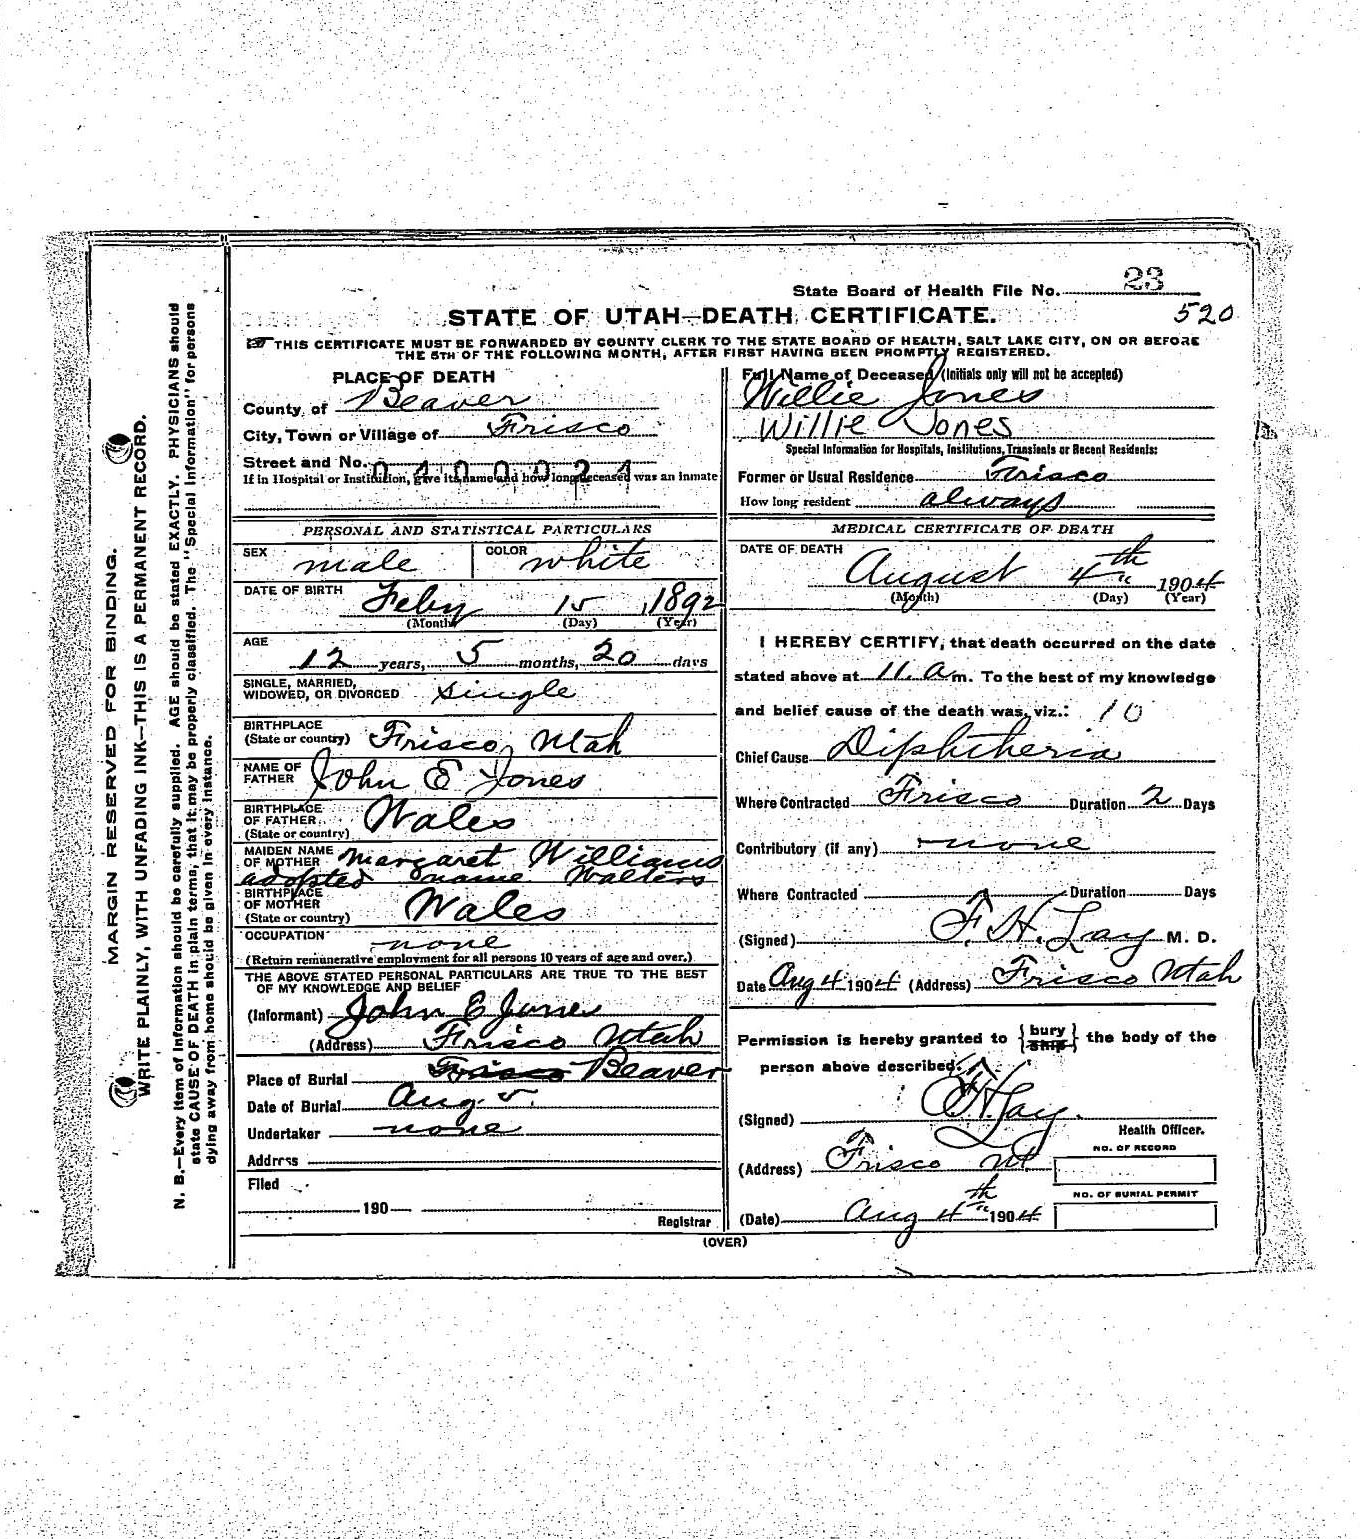 MARGIN RESERVED FOR BINDING.
WRITE PLAINLY, WITH UNFADING INK—THIS IS A PERMANENT RECORD.
N. B.—Every item of information should be carefully supplied. AGE should be stated EXACTLY. PHYSICIANS should
state CAUSE OF DEATH in plain terms, that it may be properly classified. The "Special Information" for persons
dying away from home should be given in every instance.
State Board of Health File No. 23
520
STATE OF UTAH—DEATH CERTIFICATE.
THIS CERTIFICATE MUST BE FORWARDED BY COUNTY CLERK TO THE STATE BOARD OF HEALTH, SALT LAKE CITY, ON OR BEFORE
THE 5TH OF THE FOLLOWING MONTH, AFTER FIRST HAVING BEEN PROMPTLY REGISTERED.
PLACE OF DEATH
County of Beaver
City, Town or Village of Frisco
Street and No. 0400021
If in Hospital or Institution, give its name and how long deceased was an inmate
PERSONAL AND STATISTICAL PARTICULARS
SEX male COLOR white
DATE OF BIRTH Feby 15, 1892
(Month) (Day) (Year)
AGE
12 years, 5 months, 20 days
SINGLE, MARRIED,
WIDOWED, OR DIVORCED single
BIRTHPLACE
(State or country) Frisco, Utah
NAME OF
FATHER John E Jones
BIRTHPLACE
OF FATHER
(State or country) Wales
MAIDEN NAME
OF MOTHER Margaret Williams
adopted name Walters
BIRTHPLACE
OF MOTHER
(State or country) Wales
OCCUPATION none
(Return remunerative employment for all persons 10 years of age and over.)
THE ABOVE STATED PERSONAL PARTICULARS ARE TRUE TO THE BEST
OF MY KNOWLEDGE AND BELIEF
(Informant) John E Jones
(Address) Frisco Utah
Place of Burial Frisco Beaver
Date of Burial Aug. 5.
Undertaker none
Address
Filed
190
Registrar
Full Name of Deceased (Initials only will not be accepted)
Willie Jones
Willie Jones
Special Information for Hospitals, Institutions, Transients or Recent Residents:
Former or Usual Residence Frisco
How long resident always
MEDICAL CERTIFICATE OF DEATH
DATE OF DEATH
August 4th 1904
(Month) (Day) (Year)
I HEREBY CERTIFY, that death occurred on the date
stated above at 11. a m. To the best of my knowledge
and belief cause of the death was, viz.: 10
Chief Cause Diphtheria
Where Contracted Frisco Duration 2 Days
Contributory (if any) none
Where Contracted Duration Days
(Signed) F. H. Lay M. D.
Date Aug 4 1904 (Address) Frisco Utah
Permission is hereby granted to {bury ship} the body of the
person above described.
(Signed) F H Lay.
Health Officer.
(Address) Frisco Ut
NO. OF RECORD
NO. OF BURIAL PERMIT
(Date) Aug 4th 1904
(OVER)